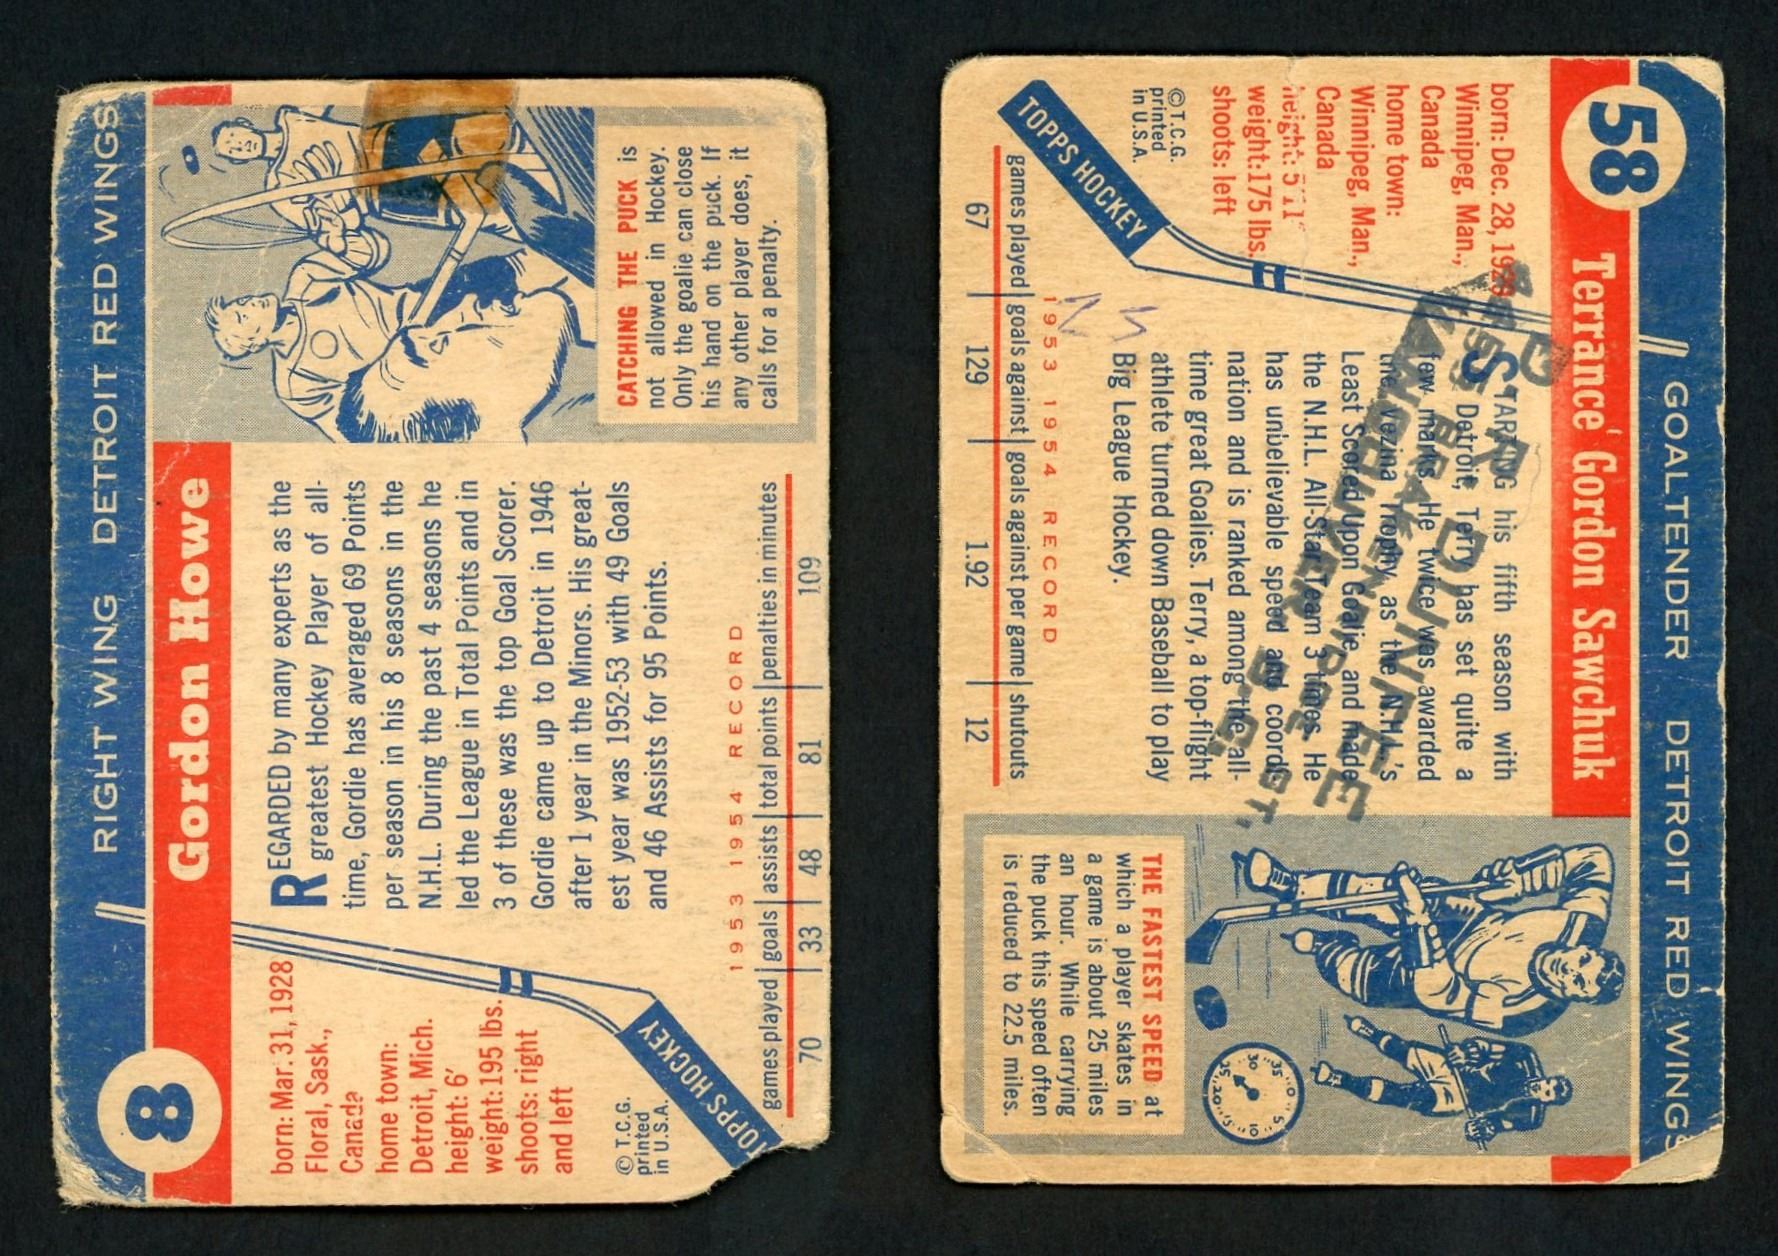 RIGHT WING DETROIT RED WINGS
8
Gordon Howe
born: Mar. 31, 1928
Floral, Sask.,
Canada
home town:
Detroit, Mich.
height: 6'
weight: 195 lbs.
shoots: right
and left
© T.C.G.
printed
in U.S.A.
TOPPS HOCKEY
REGARDED by many experts as the
greatest Hockey Player of all-
time, Gordie has averaged 69 Points
per season in his 8 seasons in the
N.H.L. During the past 4 seasons he
led the League in Total Points and in
3 of these was the top Goal Scorer.
Gordie came up to Detroit in 1946
after 1 year in the Minors. His great-
est year was 1952-53 with 49 Goals
and 46 Assists for 95 Points.
CATCHING THE PUCK is
not allowed in Hockey.
Only the goalie can close
his hand on the puck. If
any other player does, it
calls for a penalty.
1953 1954 RECORD
games played goals assists total points penalties in minutes
70 33 48 81 109
GOALTENDER DETROIT RED WINGS
58
Terrance Gordon Sawchuk
born: Dec. 28, 1929
Winnipeg, Man.,
Canada
home town:
Winnipeg, Man.,
Canada
height: 5'11"
weight: 175 lbs.
shoots: left
© T.C.G.
printed
in U.S.A.
TOPPS HOCKEY
STARRING his fifth season with
Detroit, Terry has set quite a
few marks. He twice was awarded
the Vezina Trophy, as the N.H.L.'s
Least Scored Upon Goalie, and made
the N.H.L. All-Star Team 3 times. He
has unbelievable speed and coordi-
nation and is ranked among the all-
time great Goalies. Terry, a top-flight
athlete turned down Baseball to play
Big League Hockey.
DUNFEE
VANCOUVER B.C.
25
1953 1954 RECORD
games played goals against goals against per game shutouts
67 129 1.92 12
THE FASTEST SPEED at
which a player skates in
a game is about 25 miles
an hour. While carrying
the puck this speed often
is reduced to 22.5 miles.
5 10 15 20 25 30 35 0